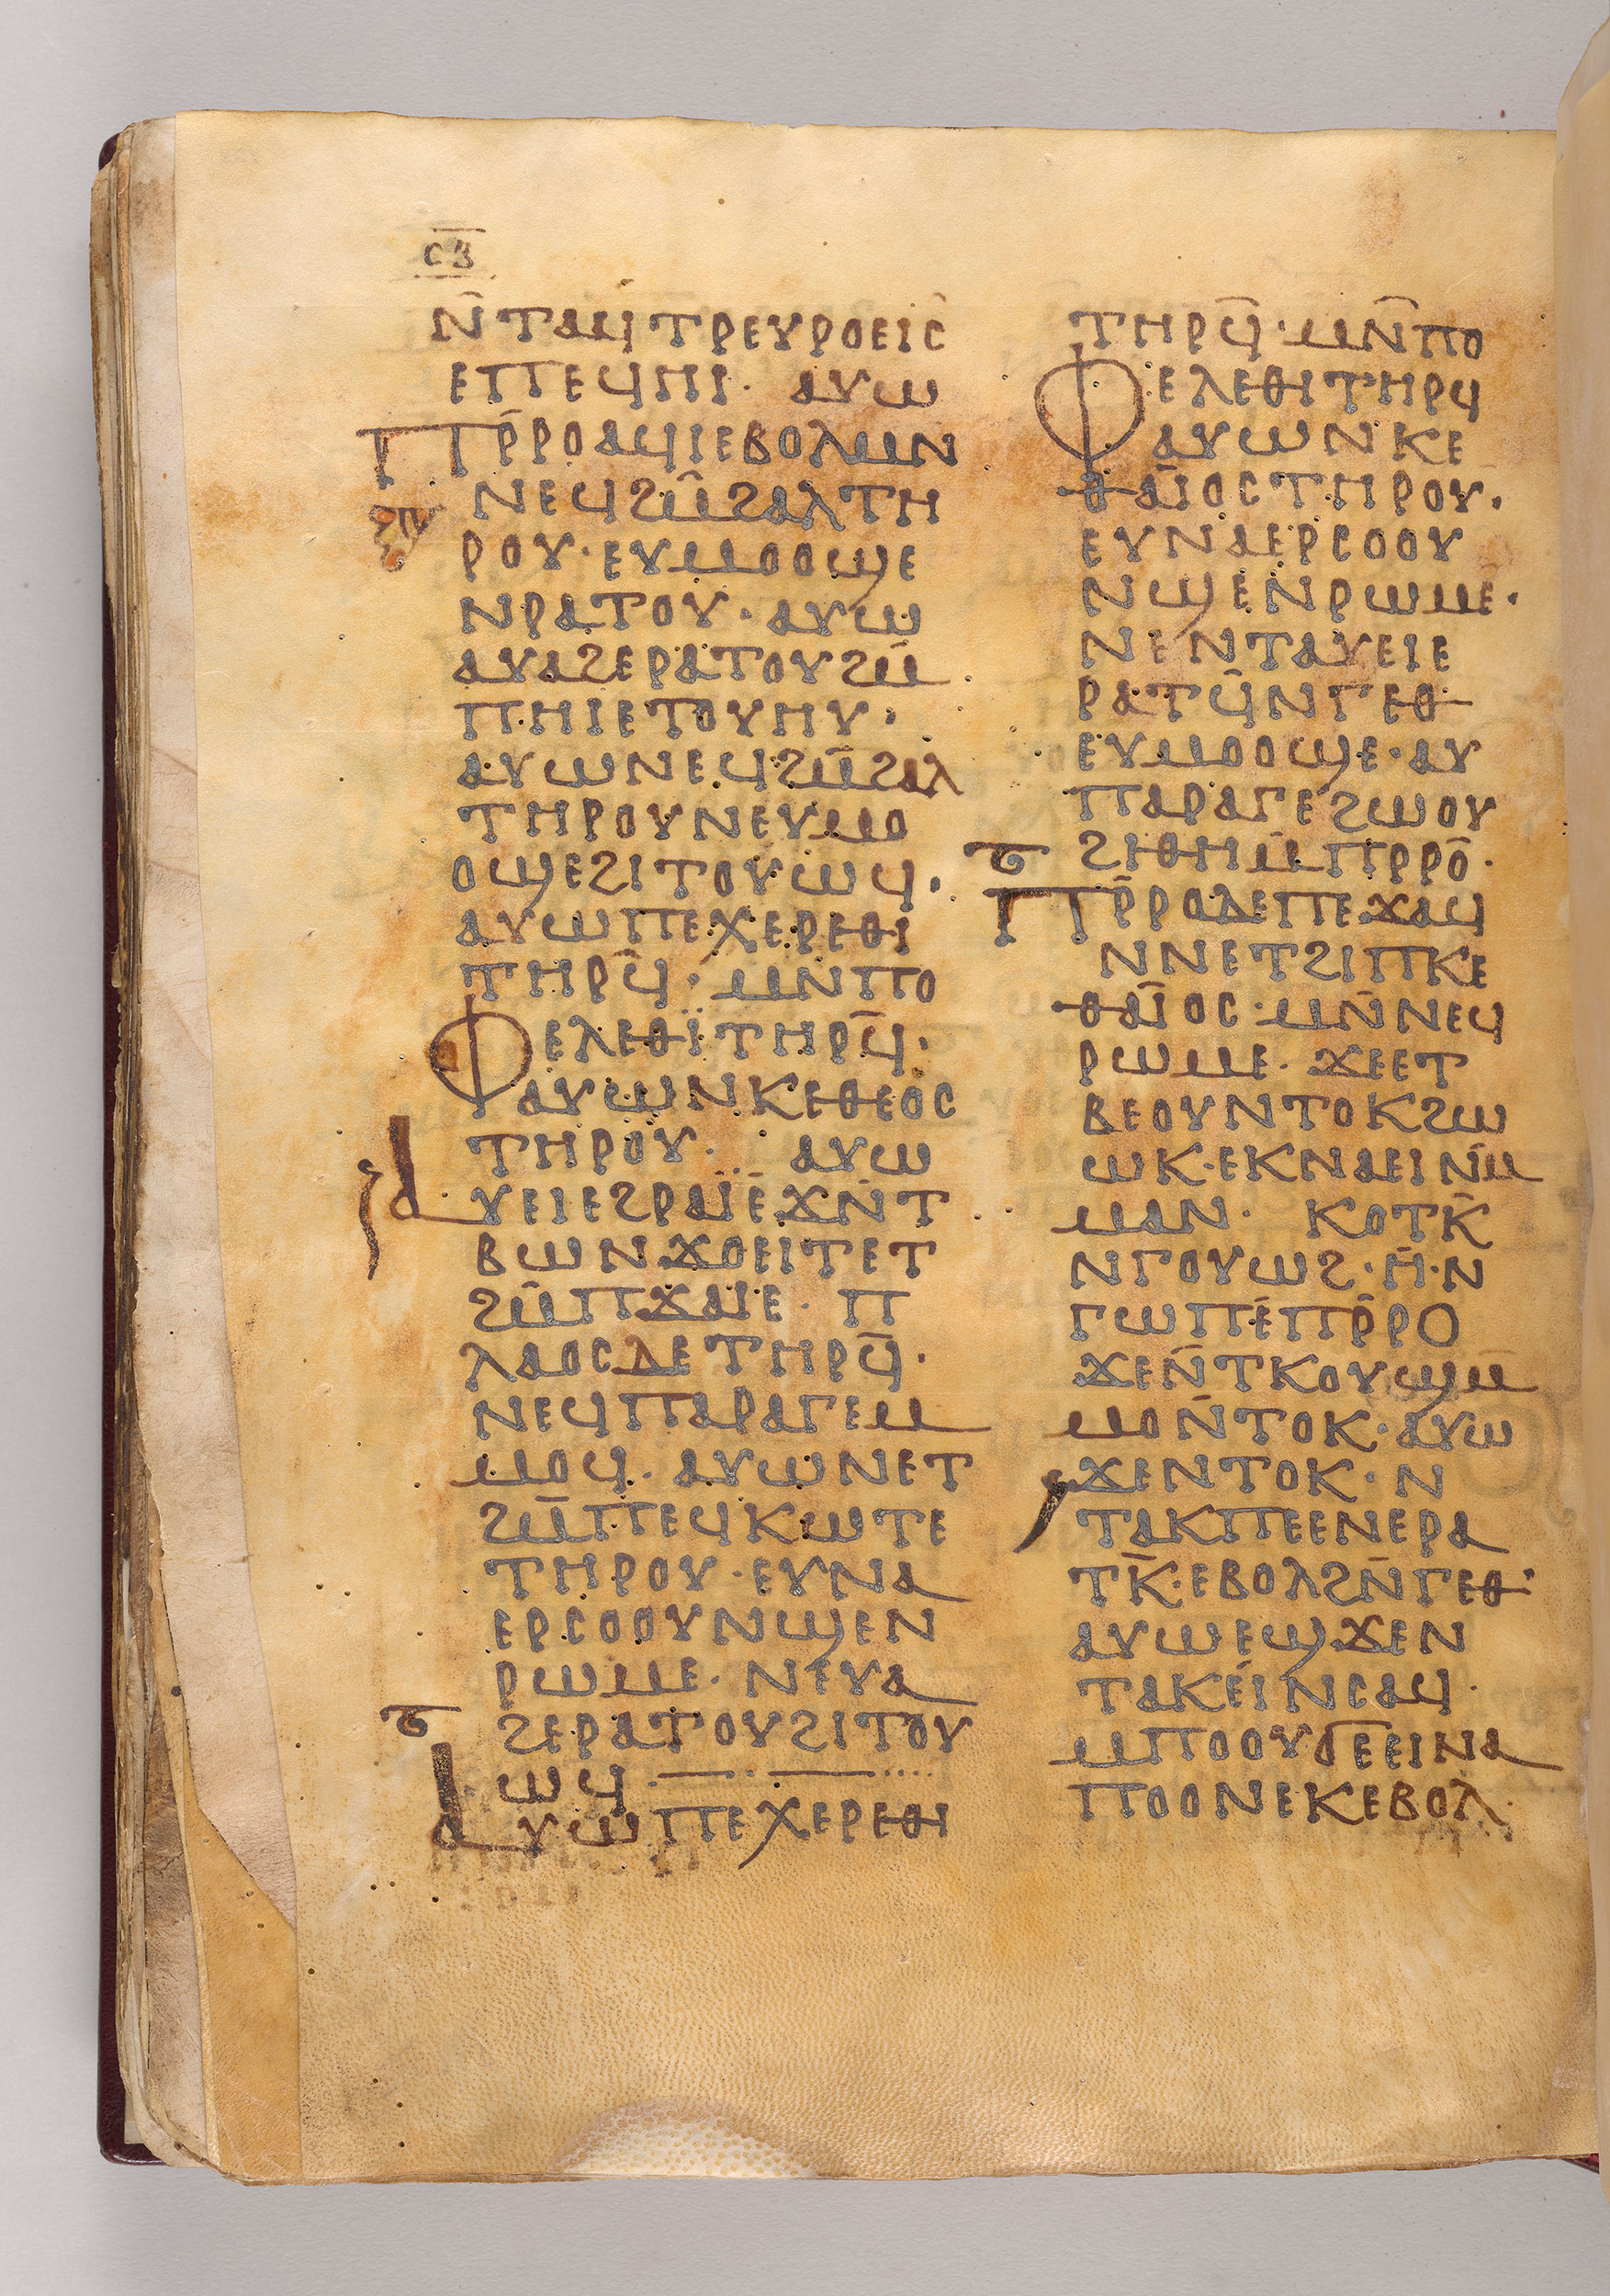 ⲥⲃ
ⲛ̄ⲧⲁϥⲧⲣⲉⲩⲣⲟⲉⲓⲥ
ⲉⲡⲉϥⲏⲓ· ⲁⲩⲱ
ⲡⲣ̄ⲣⲟⲁϥⲓⲉⲃⲟⲗⲙⲛ
ⲛⲉϥϩⲙ̄ϩⲁⲗⲧⲏ
ⲣⲟⲩ· ⲉⲩⲙⲟⲟϣⲉ
ⲛⲣⲁⲧⲟⲩ· ⲁⲩⲱ
ⲁⲩⲁϩⲉⲣⲁⲧⲟⲩϩⲙ̄
ⲡⲏⲓⲉⲧⲟⲩⲏⲩ·
ⲁⲩⲱⲛⲉϥϩⲙ̄ϩⲁⲗ
ⲧⲏⲣⲟⲩⲛⲉⲩⲙⲟ
ⲟϣⲉϩⲓⲧⲟⲩⲱϥ·
ⲁⲩⲱⲡⲉⲭⲉⲣⲉⲑⲓ
ⲧⲏⲣϥ̄· ⲙⲛ̄ⲡⲟ
ⲫⲉⲗⲉⲑⲓ̈ⲧⲏⲣϥ̄·
ⲁⲩⲱⲛⲕⲉⲑⲉⲟⲥ
ⲧⲏⲣⲟⲩ· ⲁⲩⲱ
ⲁⲩⲉⲓⲉϩⲣⲁⲓ̈ⲉϫⲛ̄ⲧ
ⲃⲱⲛϫⲟⲉⲓⲧⲉⲧ
ϩⲙ̄ⲡϫⲁⲓⲉ· ⲡ
ⲗⲁⲟⲥⲇⲉⲧⲏⲣϥ̄·
ⲛⲉϥⲡⲁⲣⲁⲅⲉⲙ
ⲙⲟϥ· ⲁⲩⲱⲛⲉⲧ
ϩⲙ̄ⲡⲉϥⲕⲱⲧⲉ
ⲧⲏⲣⲟⲩ· ⲉⲩⲛⲁ
ⲉⲣⲥⲟⲟⲩⲛϣⲉⲛ
ⲣⲱⲙⲉ· ⲛⲉⲩⲁ
ϩⲉⲣⲁⲧⲟⲩϩⲓⲧⲟⲩ
ⲱϥ·
ⲁⲩⲱⲡⲉⲭⲉⲣⲉⲑⲓ
ⲧⲏⲣϥ̄· ⲙⲛ̄ⲡⲟ
ⲫⲉⲗⲉⲑⲓⲧⲏⲣϥ
ⲁⲩⲱⲛⲕⲉ
ⲑⲁⲓ̈ⲟⲥⲧⲏⲣⲟⲩ·
ⲉⲩⲛⲁⲉⲣⲥⲟⲟⲩ
ⲛϣⲉⲛⲣⲱⲙⲉ·
ⲛⲉⲛⲧⲁⲩⲉⲓⲉ
ⲣⲁⲧϥ̄ⲛⲅⲉⲑ
ⲉⲩⲙⲟⲟϣⲉ· ⲁⲩ
ⲡⲁⲣⲁⲅⲉϩⲱⲟⲩ
ϩⲓⲑⲏⲙ̄ⲡⲣⲣⲟ̄·
ⲡⲣ̄ⲣⲟⲇⲉⲡⲉϫⲁϥ
ⲛⲛⲉⲧϩⲓⲡⲕⲉ
ⲑⲁⲓ̈ⲟⲥ· ⲙⲛ̄ⲛⲉϥ
ⲣⲱⲙⲉ· ϫⲉⲉⲧ
ⲃⲉⲟⲩⲛⲧⲟⲕϩⲱ
ⲱⲕ· ⲉⲕⲛⲁⲉⲓⲛⲙ̄
ⲙⲁⲛ· ⲕⲟⲧⲕ̄
ⲛⲅⲟⲩⲱϩ· ⲏ̄· ⲛ
ⲅⲱⲡⲉⲡⲣ̄ⲣⲟ
ϫⲉⲛ̄ⲧⲕⲟⲩϣⲙ̄
ⲙⲟⲛ̄ⲧⲟⲕ· ⲁⲩⲱ
ϫⲉⲛⲧⲟⲕ· ⲛ
ⲧⲁⲕⲡⲉⲉⲛⲉⲣⲁ
ⲧⲕ̄· ⲉⲃⲟⲗϩⲛ̄ⲅⲉⲑ·
ⲁⲩⲱⲉϣϫⲉⲛ
ⲧⲁⲕⲉⲓⲛⲥⲁϥ·
ⲙⲡⲟⲟⲩϭⲉⲉⲓⲛⲁ
ⲡⲟⲟⲛⲉⲕⲉⲃⲟⲗ